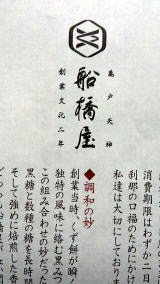 亀戸天神
船橋屋
創業文化二年
消費期限はわずか二日
刹那の口福のためにかけ
私達は大切にしており
◆調和の妙
創業当時、くず餅が瞬
独特の風味に絡む黒みつ
この組み合わせの妙だっ
黒糖と数種の糖を長時間
そして強めに焙煎した香